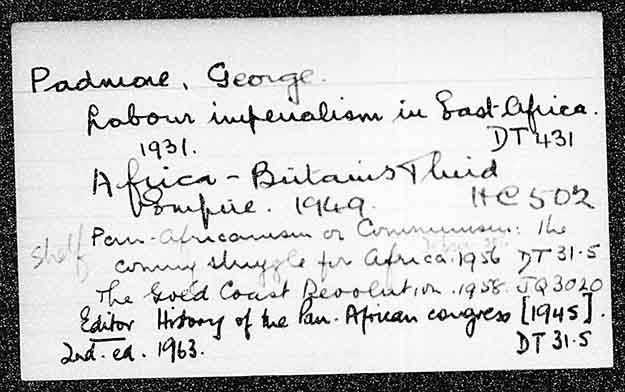 Padmore, George.
Labour imperialism in East Africa.
1931. DT 431
Africa - Britain's Third
Empire. 1949. HC 502
shelf Pan-Africanism or Communism: the
coming struggle for Africa. 1956 DT 31.5
The Gold Coast Revolution. 1958. JQ 3020
Editor History of the Pan-African congress [1945].
2nd. ed. 1963. DT 31.5